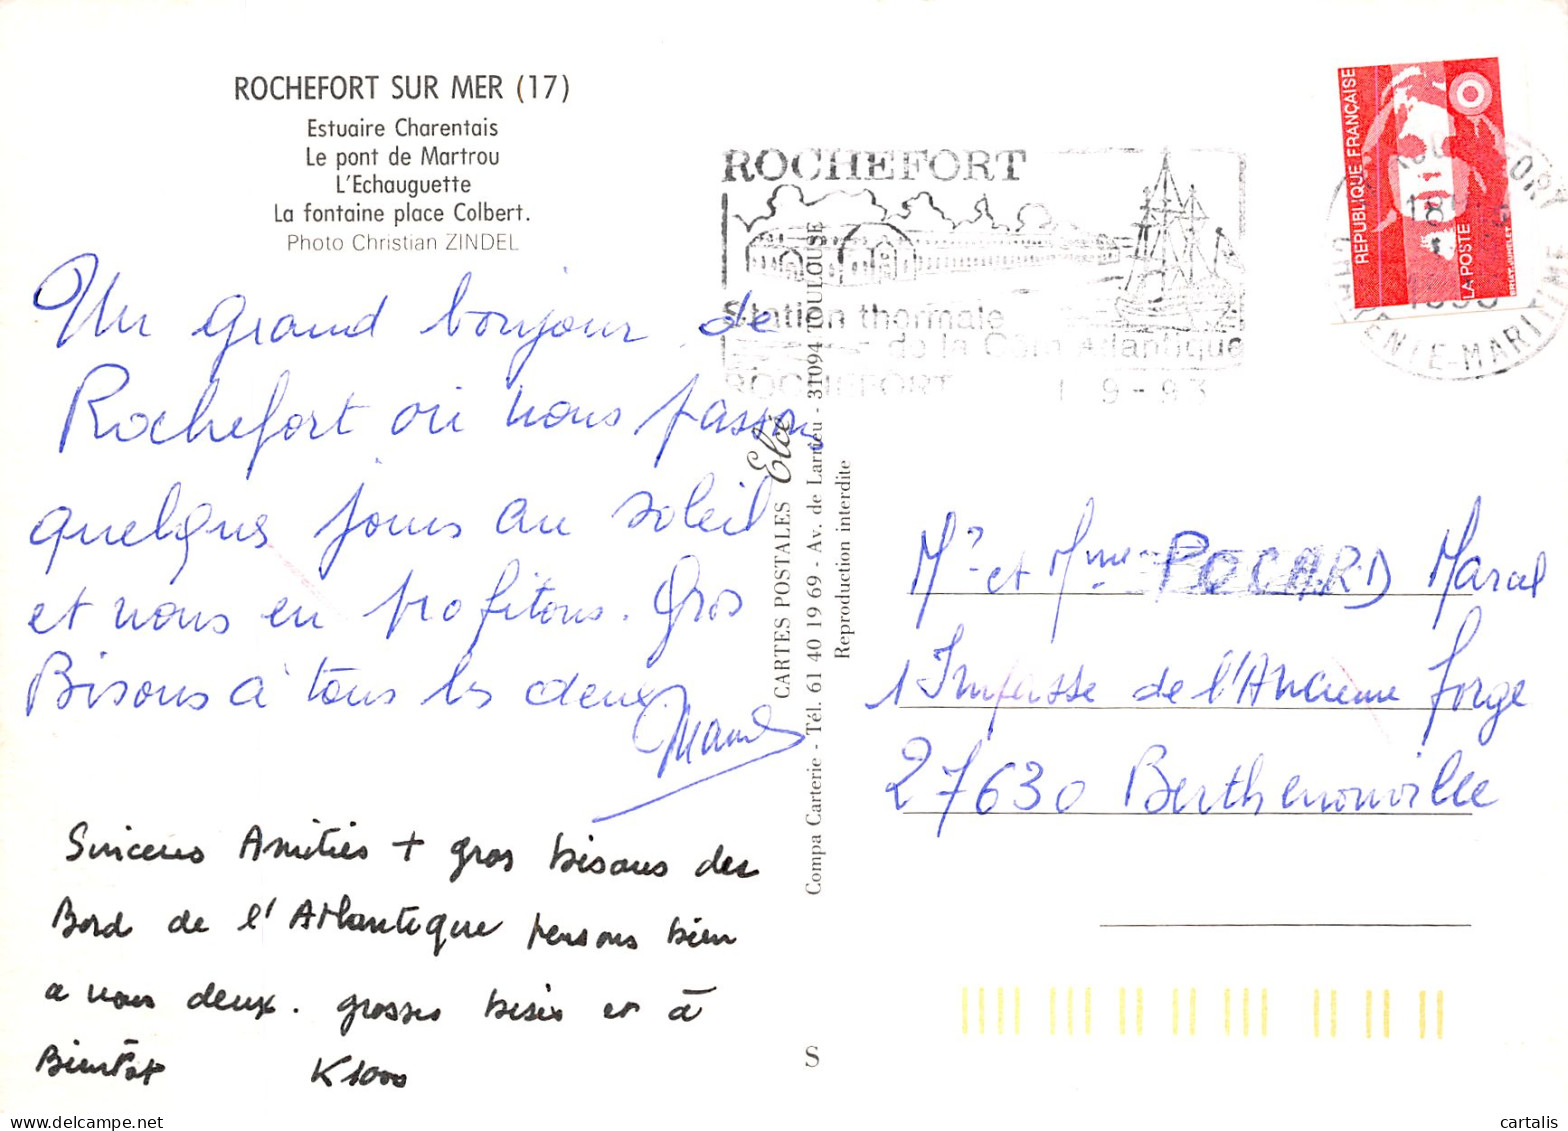 ROCHEFORT SUR MER (17)
Estuaire Charentais
Le pont de Martrou
L'Echauguette
La fontaine place Colbert.
Photo Christian ZINDEL
Un grand bonjour de
Rochefort où nous passons
quelques jours au soleil
et nous en profitons. Gros
Bisous à tous les deux
Sincères Amitiés + gros bisous des
Bord de l'Atlantique pensons bien
a vous deux. grosses bises et à
Bientôt K1000
CARTES POSTALES Elcé
Compa Carterie - Tél. 61 40 19 69 - Av. de Larrieu - 31094 TOULOUSE
Reproduction interdite
S
ROCHEFORT
Station thermale
de la Côte Atlantique
ROCHEFORT 1 9-93
REPUBLIQUE FRANÇAISE
LA POSTE
CHARENTE-MARITIME
Mr et Mme POCARD Marcel
1 Impasse de l'Ancienne forge
27630 Berthenonville
cartalis